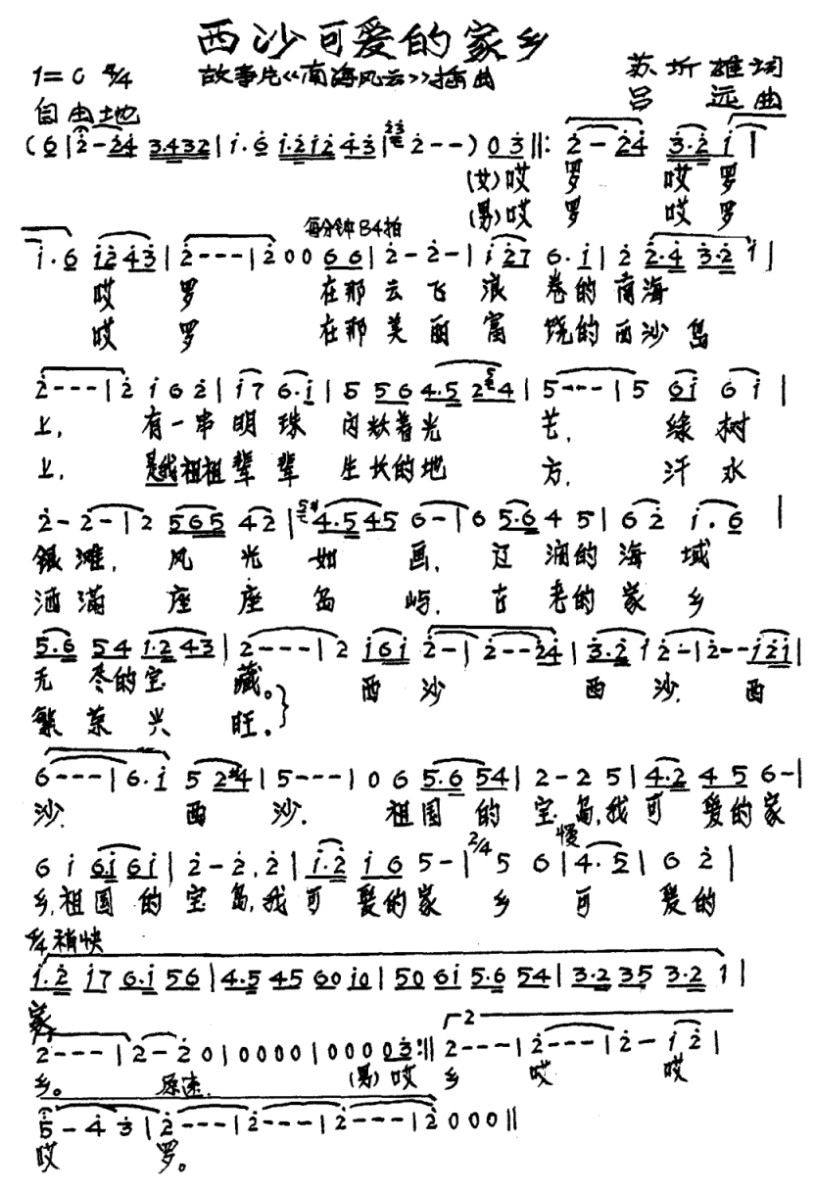 西沙可爱的家乡
1=C 4/4 故事片《南海风云》插曲 苏圻雄词
自由地 吕远曲
(6|2-24 3.432|1.6 1212 43|23 2--)03||:2-24 3.2 1|
(女)哎 罗 哎 罗
(男)哎 罗 哎 罗
每分钟84拍
1.6 12 43|2---|2 0 0 66|2-2-|1 27 6.1|2 2.4 3.2 1|
哎 罗 在那 云 飞 浪 卷的 南海
哎 罗 在那 美 丽 富 饶的 西沙岛
2---|2 1 6 2|17 6.1|5 56 4.5 2 54|5---|5 61 6 1|
上, 有一串 明 珠 闪烁着光 芒, 绿 树
上, 是我祖祖辈 辈 生长的地 方, 汗 水
2-2-|2 565 42|54 4.5 45 6-|6 5.6 4 5|6 2 1.6|
银滩, 风 光 如 画, 辽 阔的 海 域
洒满 座 座 岛 屿, 古 老的 家 乡
5.6 54 1.2 43|2---|2 161 2-|2--24|3.2 1 2-|2--121|
无 尽的宝 藏。 西 沙 西 沙, 西
繁 荣 兴 旺。
6---|6.1 5 2#4|5---|0 6 5.6 54|2-2 5|4.2 4 5 6-|
沙, 西 沙, 祖国 的 宝 岛,我可 爱的家
6 1 61 61|2-2.2|1.2 16 5-|2/4 5 6|慢 4.5|6 2|
乡,祖国 的 宝 岛,我可 爱的家 乡 可 爱的
4/4 稍快
1.2 17 6.1 56|4.5 45 60 10|50 61 5.6 54|3.2 35 3.2 1|
家
2---|2-2 0|0000|0000 03:||2 2---|2---|2-12|
乡。 原速. (男)哎 乡 哎 哎
5-4 3|2---|2---|2---|2 0 0 0||
哎 罗。